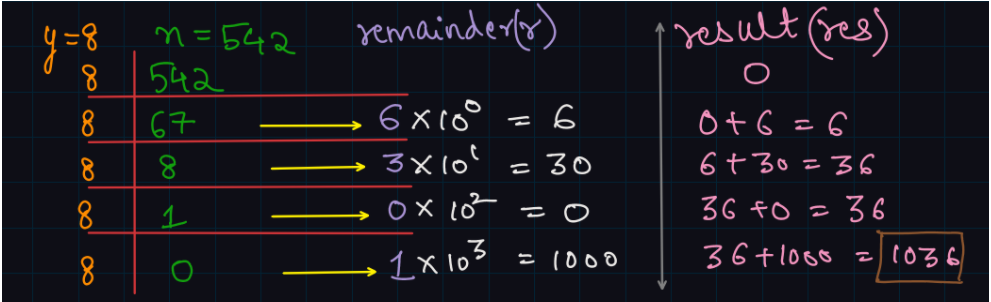 y=8 n=542 remainder(r) result(res)
8 542 0
8 67 6 × 10⁰ = 6 0+6 = 6
8 8 3 × 10¹ = 30 6+30 = 36
8 1 0 × 10² = 0 36+0 = 36
8 0 1 × 10³ = 1000 36+1000 = 1036